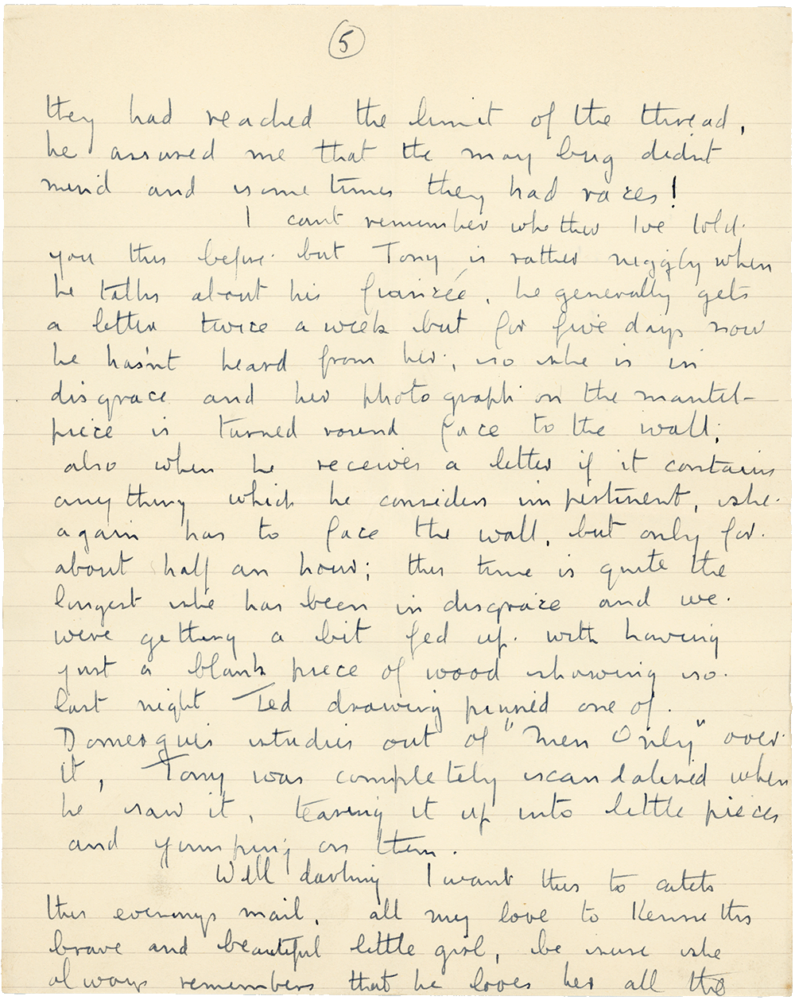 5
they had reached the limit of the thread,
he assured me that the may bug didnt
mind and sometimes they had races!
I cant remember whether Ive told
you this before but Tony is rather niggly when
he talks about his fiancée, he generally gets
a letter twice a week but for five days now
he hasn't heard from her, so she is in
disgrace and her photograph on the mantel-
piece is turned round face to the wall;
also when he receives a letter if it contains
anything which he considers impertinent, she
again has to face the wall, but only for
about half an hour; this time is quite the
longest she has been in disgrace and we
were getting a bit fed up with having
just a blank piece of wood showing so
last night Ted drawing pinned one of
studies out of "Men Only" over
it, Tony was completely scandalised when
he saw it, tearing it up into little pieces
and jumping on them.
Well darling I want this to catch
this evenings mail, all my love to Kenneths
brave and beautiful little girl, be sure she
always remembers that he loves her all the